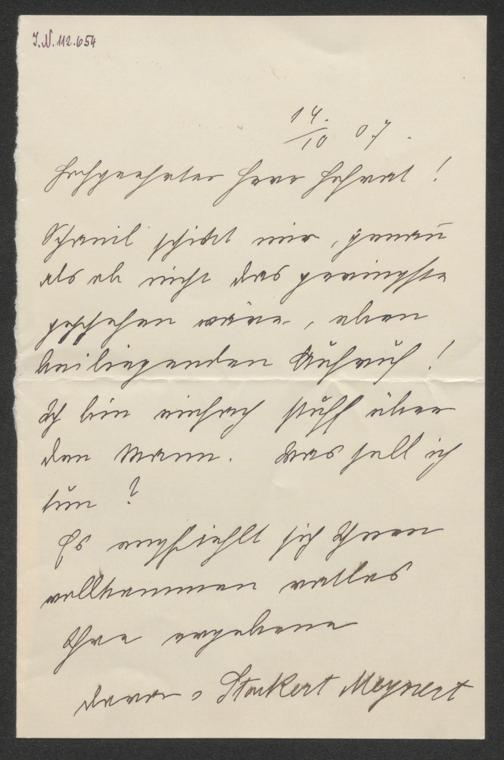 I.N. 112.654
14./10 07.
Hochgeehrter Herr Hofrat!
Schamil schickt mir, genau
als ob nicht das geringste
geschehen wäre, eben
beiliegenden Aufruf!
Ich bin einfach stuff über
den Mann. Was soll ich
tun?
Es empfiehlt sich Ihnen
vollkommen ratlos
Ihre ergebene
Dora v Stockert Meynert